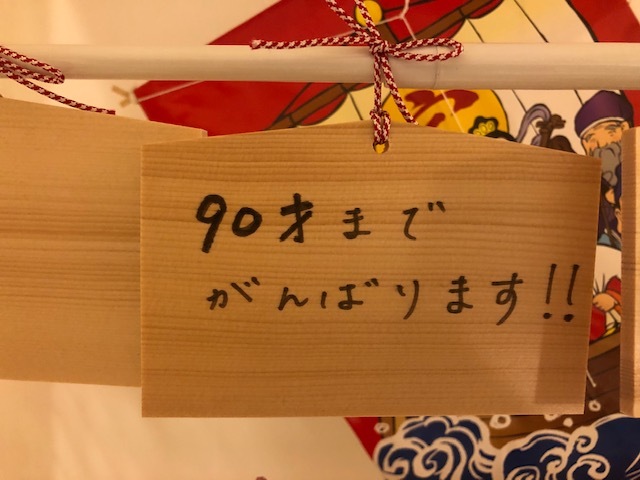 90才まで
がんばります!!